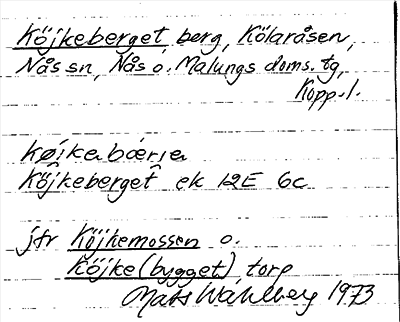 Köjkeberget, berg, Kölaråsen,
Nås sn, Nås o. Malungs doms. tg,
Kopp. l.
Køjkabærja
Köjkeberget ek 12E 6c
jfr Köjkemossen o.
Köjke(bygget) torp
Mats Wahlberg 1973